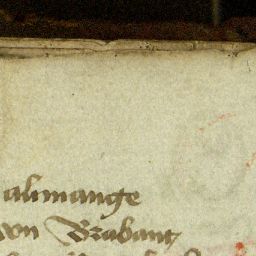 alimange
von Brabant